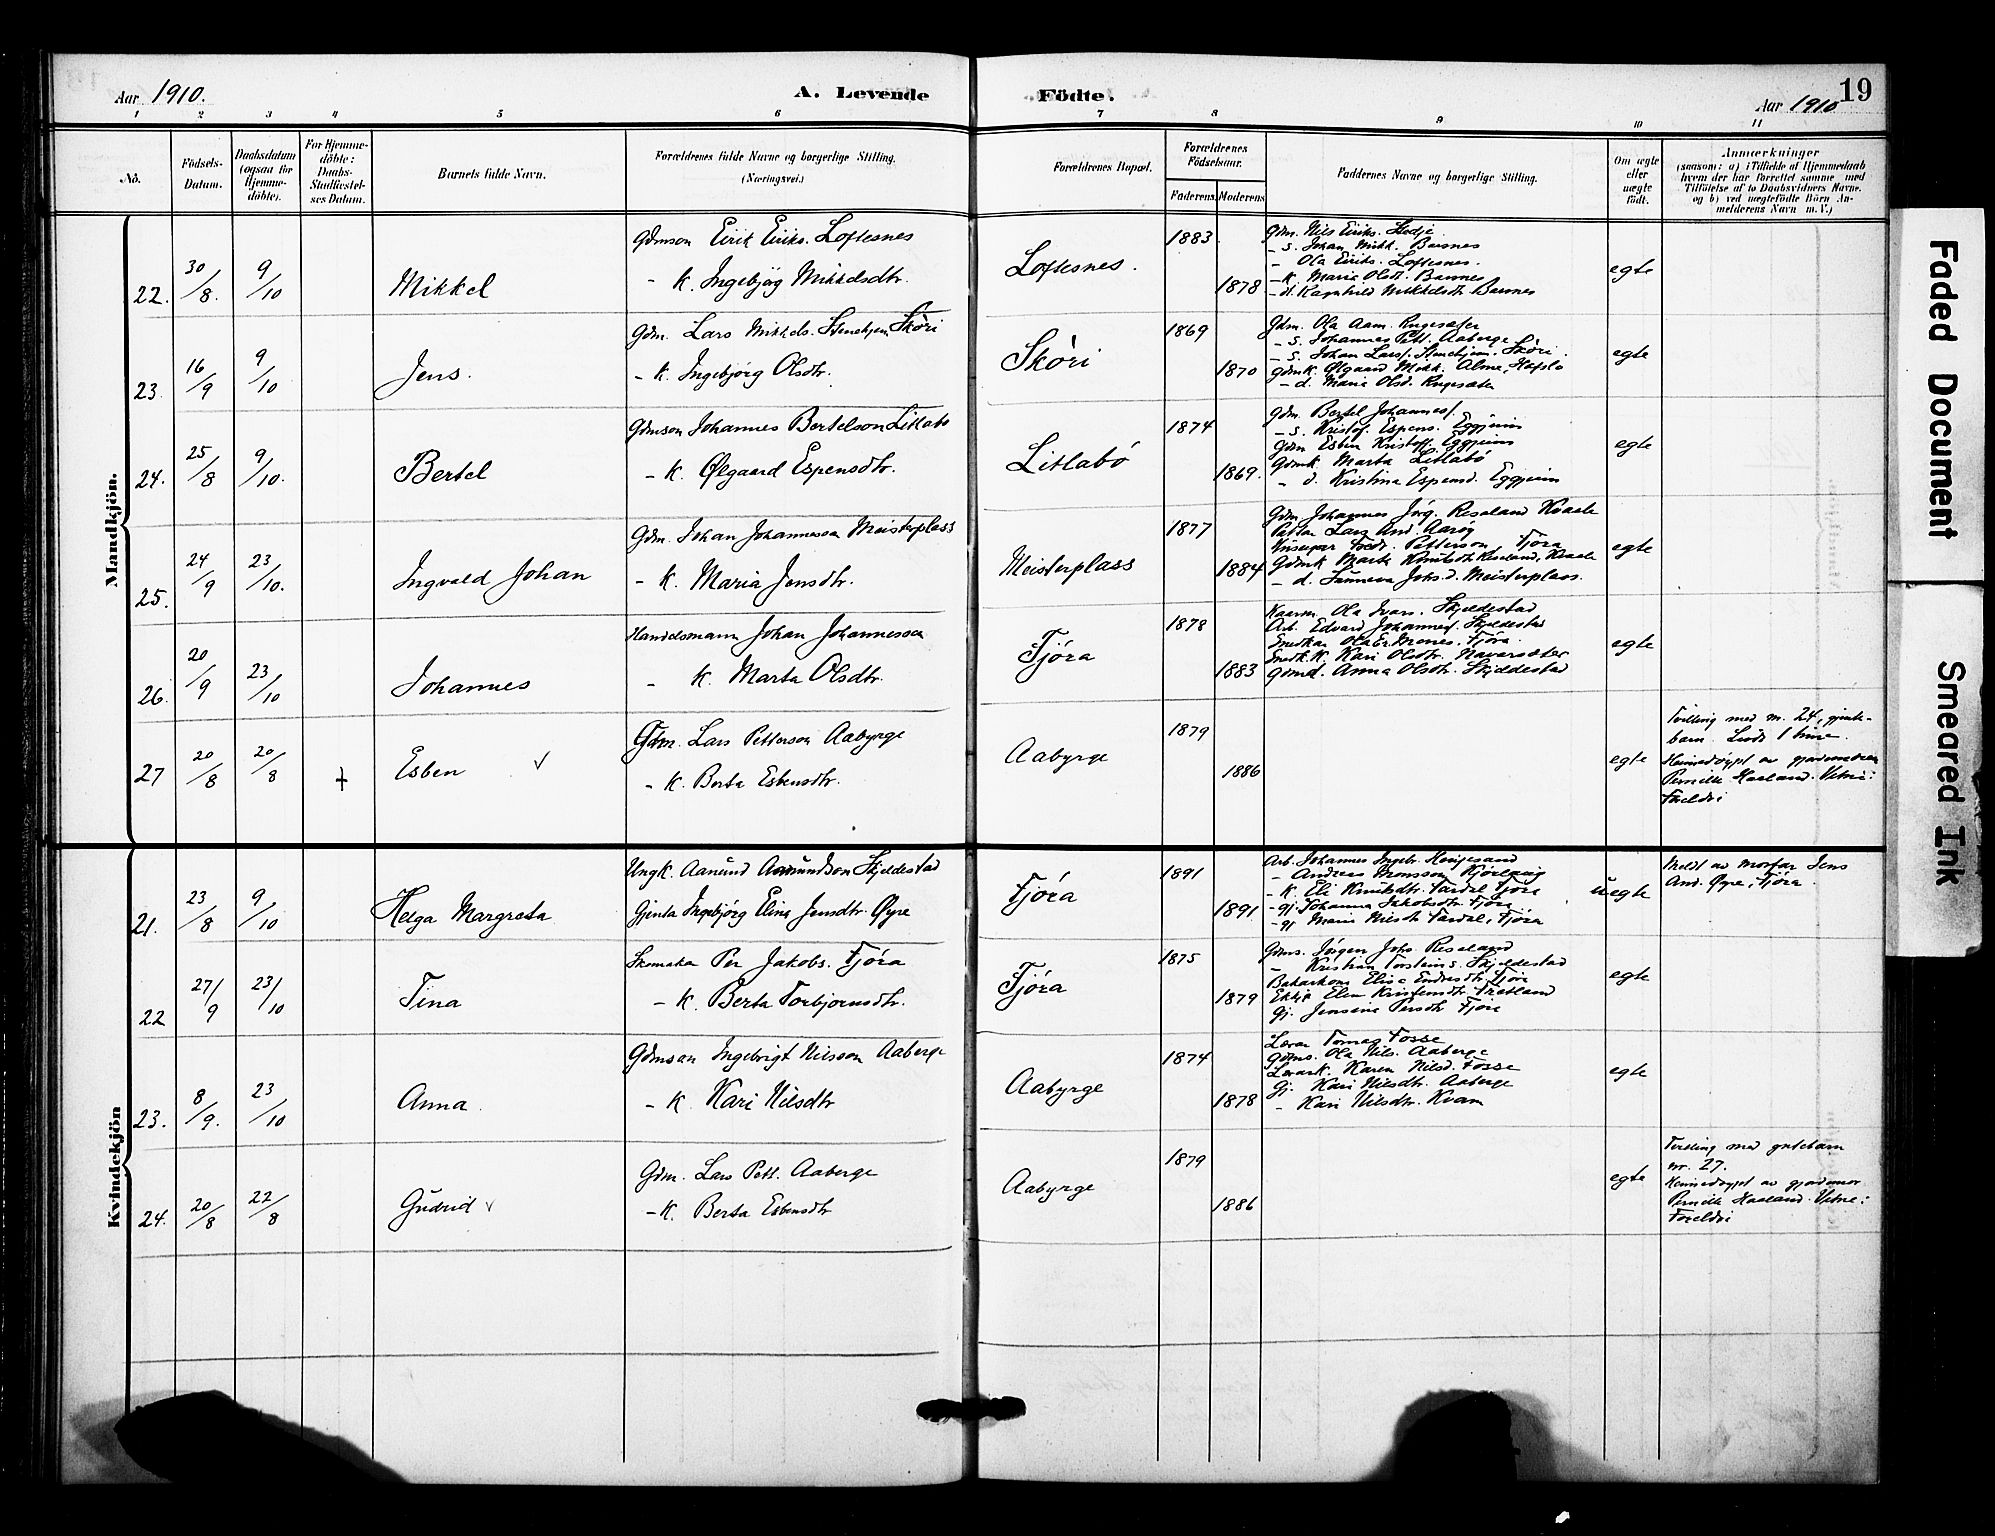 Aar 1910.
A. Levende Födte.
19
Aar 1910
1 2 3 4 5 6 7 8 9 10 11
No.
Födsels-Datum.
Daabsdatum (ogsaa for Hjemme-döbte).
For Hjemme-döbte: Daabs-Stadfæstel-ses Datum.
Barnets fulde Navn.
Forældrenes fulde Navne og borgerlige Stilling. (Næringsvei.)
Forældrenes Bopæl.
Forældrenes Födselsaar.
Faderens. Moderens.
Faddernes Navne og borgerlige Stilling.
Om ægte eller uægte födt.
Anmærkninger
(saasom: a) i Tilfælde af Hjemmedaab
hvem der har forrettet samme med
Tilföielse af to Daabsvidners Navne.
og b) ved uægtefödte Börn An-
melderens Navn m. V.)
Mandkjön.
22. 30/8. 9/10 Mikkel
Gdmson Eirik Eiriks. Loftesnes
- K. Ingebjög Mikkelsdtr.
Loftesnes. 1883. 1878
Gdm. Nils Eiriks. Stedje
- s. Johan Mikk. Barsnes
- Ola Eiriks. Loftesnes.
- k. Maria Olsdt. Barsnes
- d. Ragnhild Mikkelsdtr Barsnes
egte
23. 16/9 9/10 Jens.
Gdm. Lars Mikkels. Stenehjem Skòri
- K. Ingebjörg Olsdtr.
Skòri 1869 1870
Gdm. Ola Aam.
- s. Johannes Pett. Aaberge
- s. Johan Larss. Stenehjem. Skòri.
Gdmk. Ølgaard Mikk. Alme, Hafslo
- d. Maria Olsd.
egte
24. 25/8 9/10. Bertel
Gdmson Johannes Bertelson Litlabò
- K. Ølgaard Espensdtr.
Litlabò 1874 1869.
Gdm. Bertel Johannes.
- s. Kristof. Espens. Eggjum
Gdm Esben Kristoff. Eggjum
Gdmk. Marta Litlabò
- d. Kristina Espensd. Eggjum
egte
25. 24/9 23/10. Ingvald Johan
Gdm. Johan Johannesson Meisterplass
- K. Maria Jensdtr.
Meisterplass 1877 1884
Gdm Johannes Jörg. Reseland Kvaale
Lars And. Aaröy
Petterson, Fjòra
Gdmk Marta Reseland, Kvaale
- d. Sunneva Johs.d. Meisterplass.
egte
26 20/9 23/10 Johannes
Handelsmann Johan Johannesson
- K. Marta Olsdtr.
Fjòra 1878 1883
Kaarm. Ola Ivars. Skjeldestad
Arb. Edvard Johannes. Skjeldestad
Snedkar Ola Er. Mones. Fjòra.
Snedk.K. Kari Olsdtr. Navarsæter
Gdmd. Anna Olsdtr. Skjeldestad
egte
27 20/8 20/8 ‡ Esben √
Gdm. Lars Petterson Aabyrge
- K. Berta Esbensdtr.
Aabyrge 1879 1886
egte
Tvilling med nr. 24, gjente-
barn. Livde 1 time.
Heimedöypt av gjordemodren
Pernille Haaland. Vitne:
Foreldri
Kvindekjön
21. 23/8 9/10 Helga Margreta
Ungk. Aamund Aamundson Skjeldestad
Gjenta Ingebjòrg Elina Jensdtr. Øyre
Fjòra 1891 1891
Arb. Johannes Ingebr. Hengjesand
- Andreas Monsson
- K. Eli Knutsdtr. Tardal Fjòra
- gj. Johanna Jakobsdtr. Fjòra
- gj Maria Nilsdtr Tardal, Fjòra
uegte
Meldt av morfar Jens
And. Øyre, Fjòra.
22 27/9 23/10 Tina
Skomaka Per Jakobs. Fjòra
- K. Berta Torbjornsdtr.
Fjòra 1875 1879
Gdms. Jörgen Johs. Reseland
- Kristian Torsteins. Skjeldestad
Bakarkona Elise Endresdtr, Fjòra
Ekkje Elen
Gj. Jensine Persdtr Fjòra
egte
23. 8/9. 23/10 Anna.
Gdmsòn Ingebrigt Nilsson Aaberge
- K Kari Nilsdtr
Aabyrge 1874 1878
Lærar Tomas Fosse
Gdms. Ola Nils. Aaberge
Lærark. Karen Nilsd. Fosse
Gj. Kari Nilsdtr. Aaberge
- Kari Nilsdtr. Kvam
egte
24. 20/8 22/8 Gudrid √
Gdm. Lars Pett. Aaberge
- K. Berta Esbensdtr
Aabyrge 1879 1886
egte
Tvilling med gutebarn
nr. 27.
Heimedöypt av gjordemor
Pernille Haaland. Vitne:
Foreldri
Faded Document
Smeared Ink